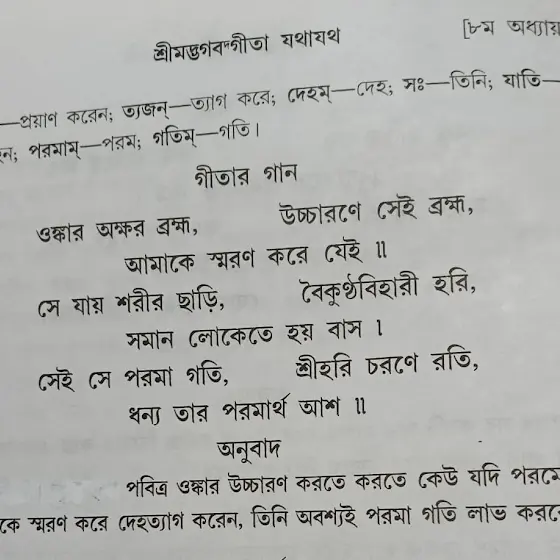 শ্রীমদ্ভগবদ্গীতা যথাযথ [৮ম অধ্যায়
—প্রয়াণ করেন; ত্যজন্—ত্যাগ করে; দেহম্—দেহ; সঃ—তিনি; যাতি—
পরমাম্—পরম; গতিম্—গতি।
গীতার গান
ওঙ্কার অক্ষর ব্রহ্ম, উচ্চারণে সেই ব্রহ্ম,
আমাকে স্মরণ করে যেই ॥
সে যায় শরীর ছাড়ি, বৈকুণ্ঠবিহারী হরি,
সমান লোকেতে হয় বাস ।
সেই সে পরমা গতি, শ্রীহরি চরণে রতি,
ধন্য তার পরমার্থ আশ ॥
অনুবাদ
পবিত্র ওঙ্কার উচ্চারণ করতে করতে কেউ যদি
স্মরণ করে দেহত্যাগ করেন, তিনি অবশ্যই পরমা গতি লাভ